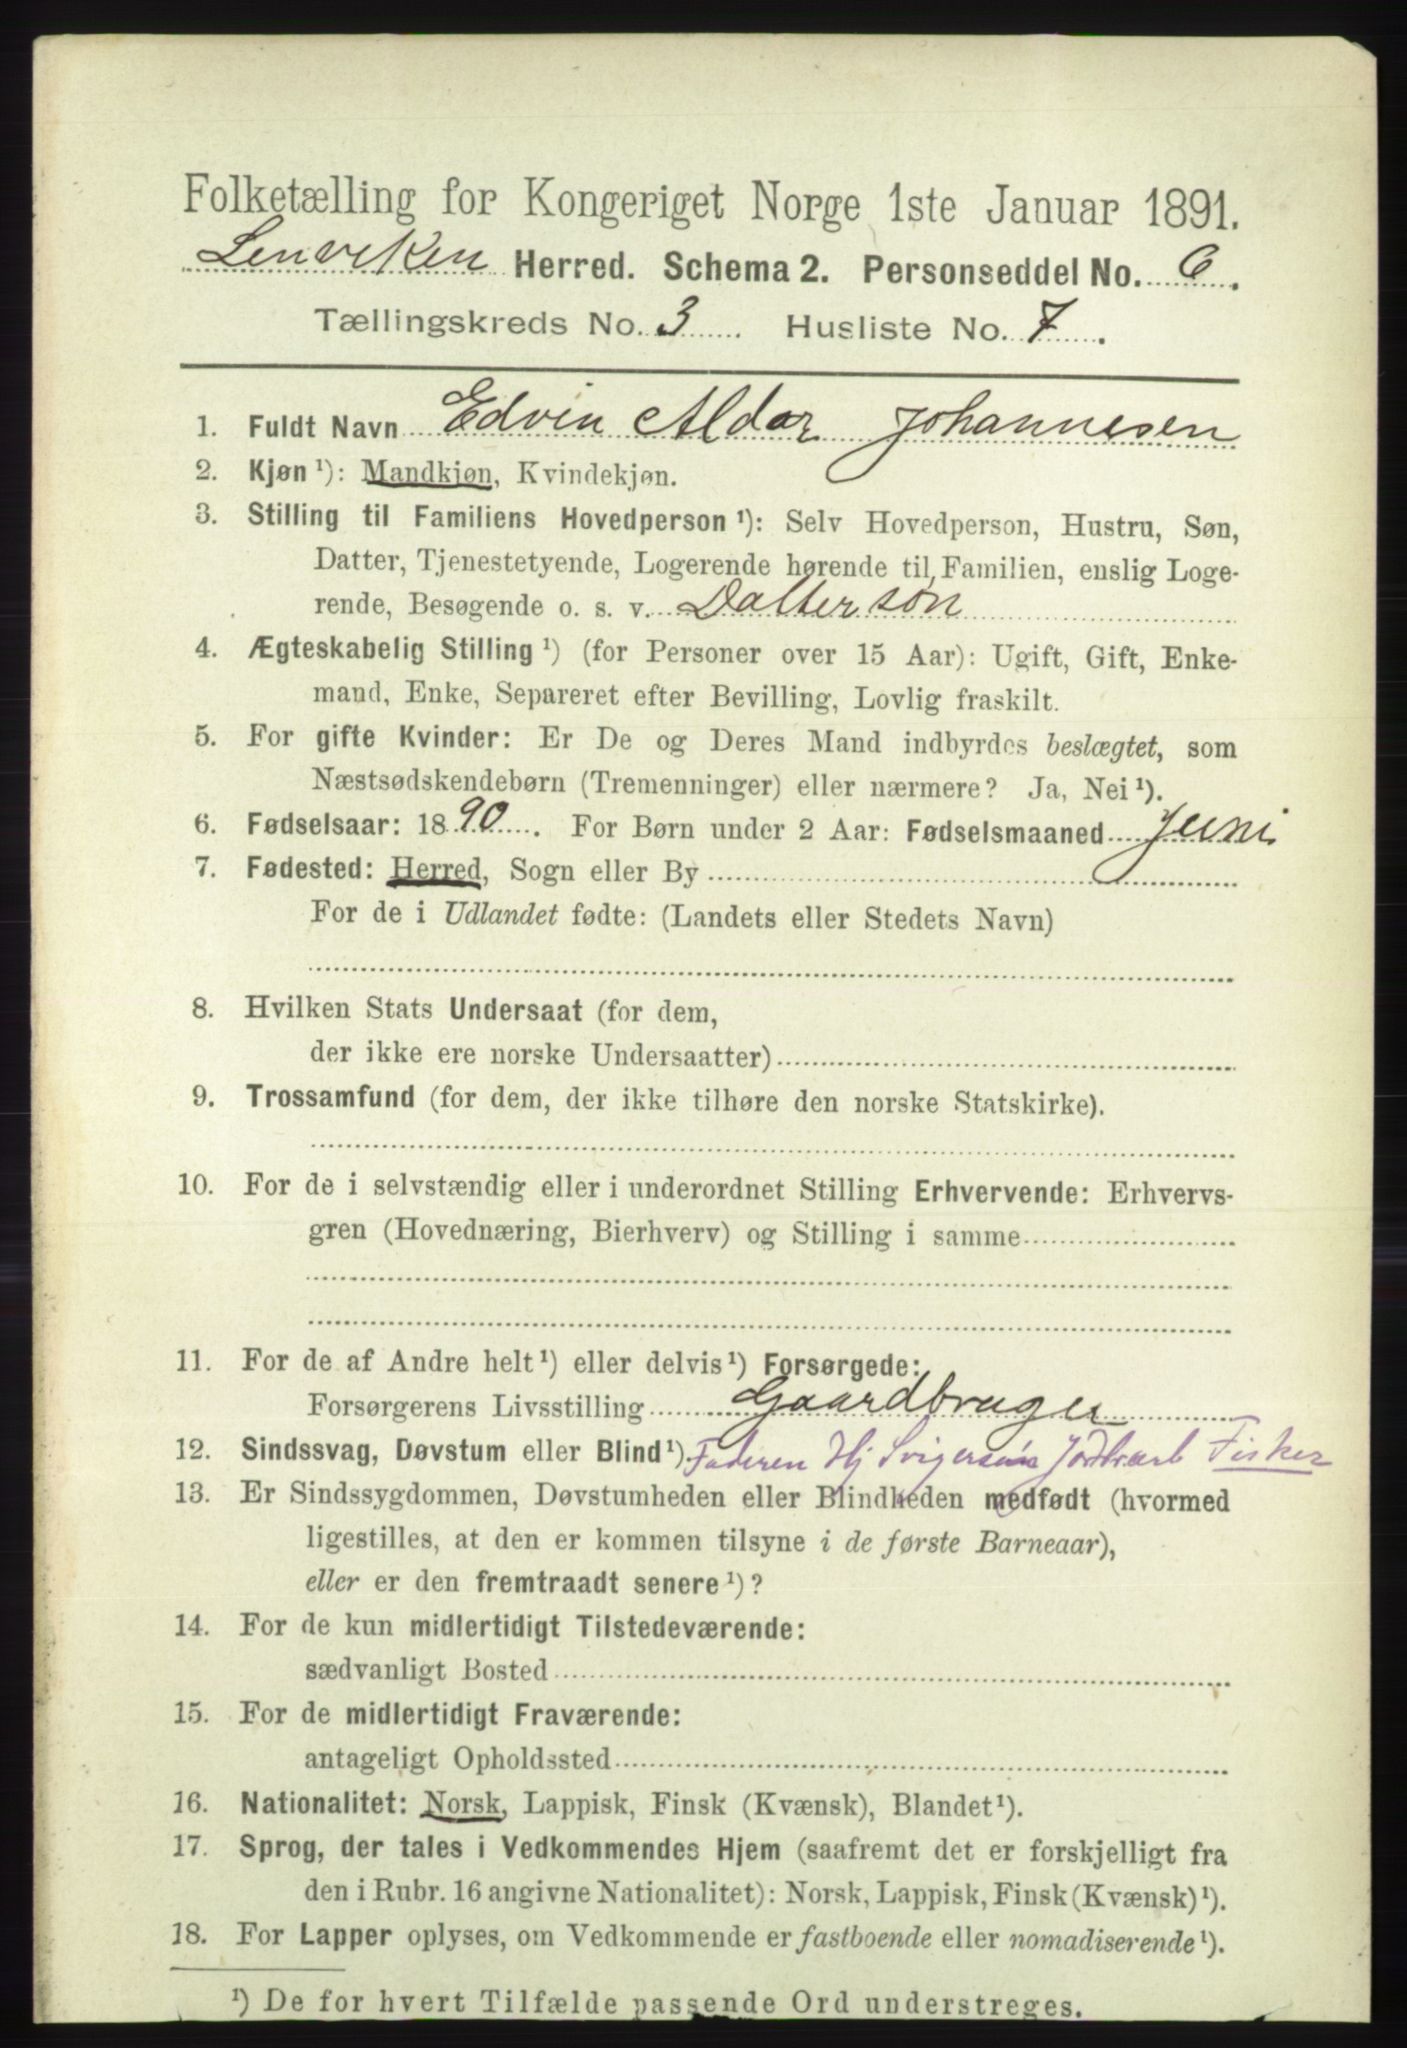 Folketælling for Kongeriget Norge 1ste Januar 1891.
Lenviken Herred. Schema 2. Personseddel No. 6.
Tællingskreds No. 3. Husliste No. 7.
1. Fuldt Navn Edvin Aldor Johannesen
2. Kjøn ¹): Mandkjøn, Kvindekjøn.
3. Stilling til Familiens Hovedperson ¹): Selv Hovedperson, Hustru, Søn,
Datter, Tjenestetyende, Logerende hørende til Familien, enslig Loge-
rende, Besøgende o. s. v. Datterson
4. Ægteskabelig Stilling ¹) (for Personer over 15 Aar): Ugift, Gift, Enke-
mand, Enke, Separeret efter Bevilling, Lovlig fraskilt.
5. For gifte Kvinder: Er De og Deres Mand indbyrdes beslægtet, som
Næstsødskendebørn (Tremenninger) eller nærmere? Ja, Nei ¹).
6. Fødselsaar: 1890. For Børn under 2 Aar: Fødselsmaaned Juni
7. Fødested: Herred, Sogn eller By
For de i Udlandet fødte: (Landets eller Stedets Navn)
8. Hvilken Stats Undersaat (for dem,
der ikke ere norske Undersaatter)
9. Trossamfund (for dem, der ikke tilhøre den norske Statskirke).
10. For de i selvstændig eller i underordnet Stilling Erhvervende: Erhvervs-
gren (Hovednæring, Bierhverv) og Stilling i samme
11. For de af Andre helt ¹) eller delvis ¹) Forsørgede:
Forsørgerens Livsstilling Gaardbruger
12. Sindssvag, Døvstum eller Blind ¹). Faderen Hj Svigersøn Jordbrarb Fisker
13. Er Sindssygdommen, Døvstumheden eller Blindheden medfødt (hvormed
ligestilles, at den er kommen tilsyne i de første Barneaar),
eller er den fremtraadt senere ¹)?
14. For de kun midlertidigt Tilstedeværende:
sædvanligt Bosted
15. For de midlertidigt Fraværende:
antageligt Opholdssted
16. Nationalitet: Norsk, Lappisk, Finsk (Kvænsk), Blandet ¹).
17. Sprog, der tales i Vedkommendes Hjem (saafremt det er forskjelligt fra
den i Rubr. 16 angivne Nationalitet): Norsk, Lappisk, Finsk (Kvænsk) ¹).
18. For Lapper oplyses, om Vedkommende er fastboende eller nomadiserende ¹).
¹) De for hvert Tilfælde passende Ord understreges.